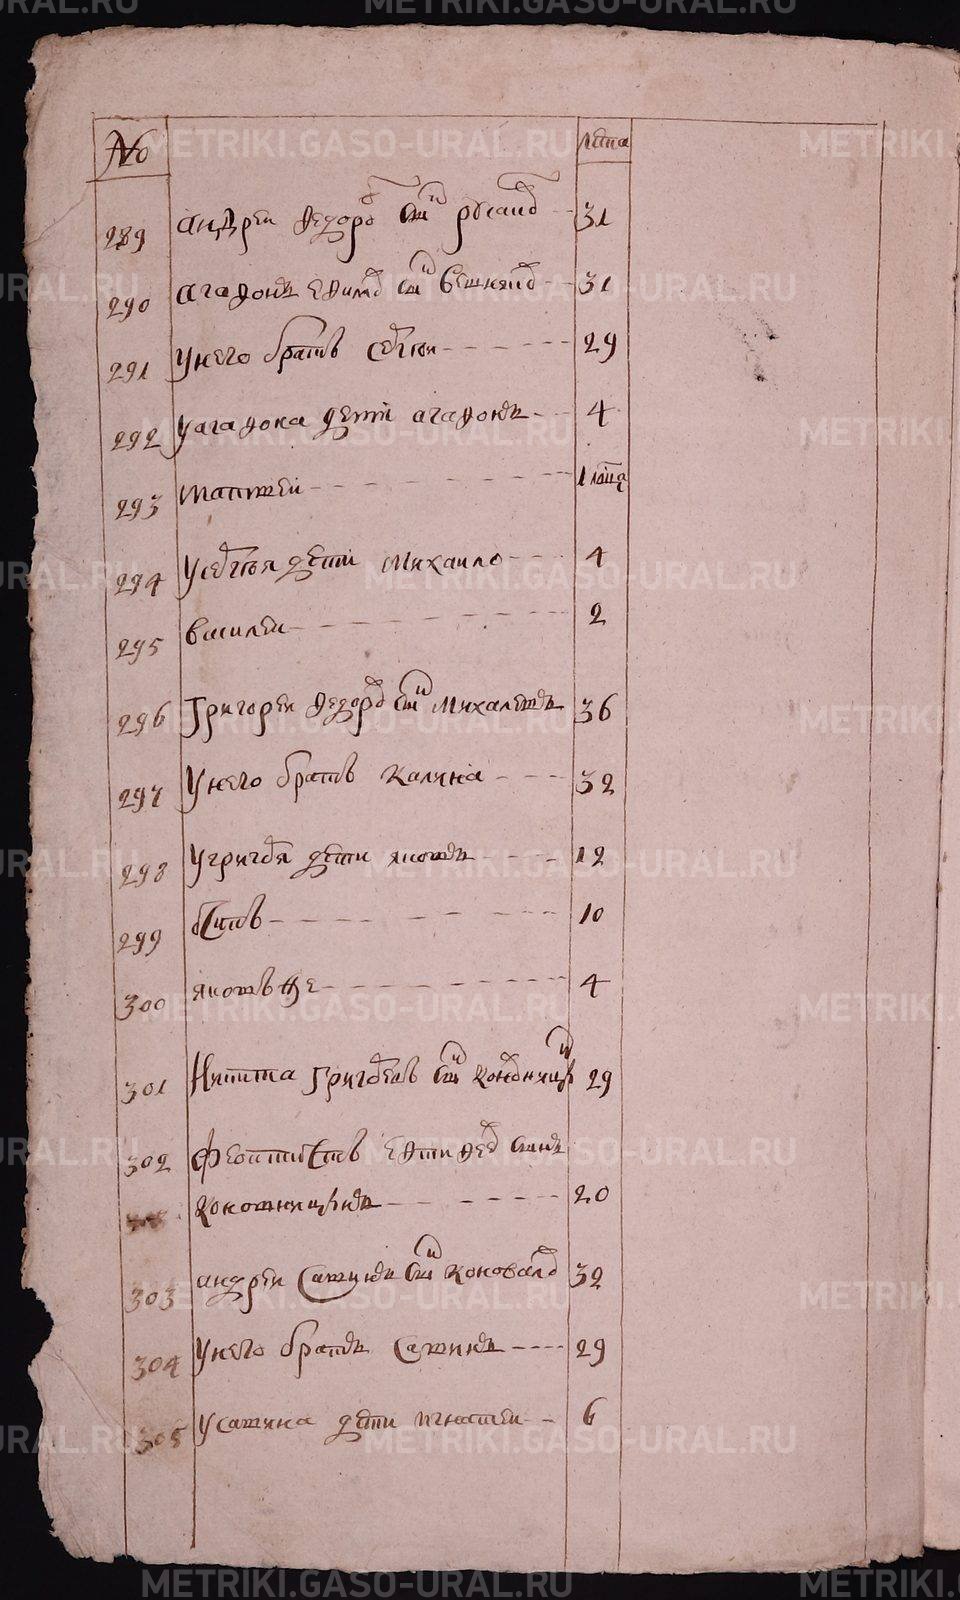 № лѣта
289 андреи федоров сын русанов 31
290 агафонъ ефимов сын вешняков 31
291 у него братъ сергеи 29
292 у агафона дети агафонъ 4
293 матвеи 1 лѣта
294 у сергея дети михаило 4
295 василеи 2
296 григореи федоров сын михалевъ 36
297 у него братъ калина 32
298 у григоря дети яковъ 12
299 10
300 яковъ же 4
301 никита григорьевъ сын 29
302 феоктистъ сынъ
20
303 андреи савинъ сын коновалов 32
304 у него братъ савинъ 29
305 у савина дети игнатеи 6
METRIKI.GASO-URAL.RU